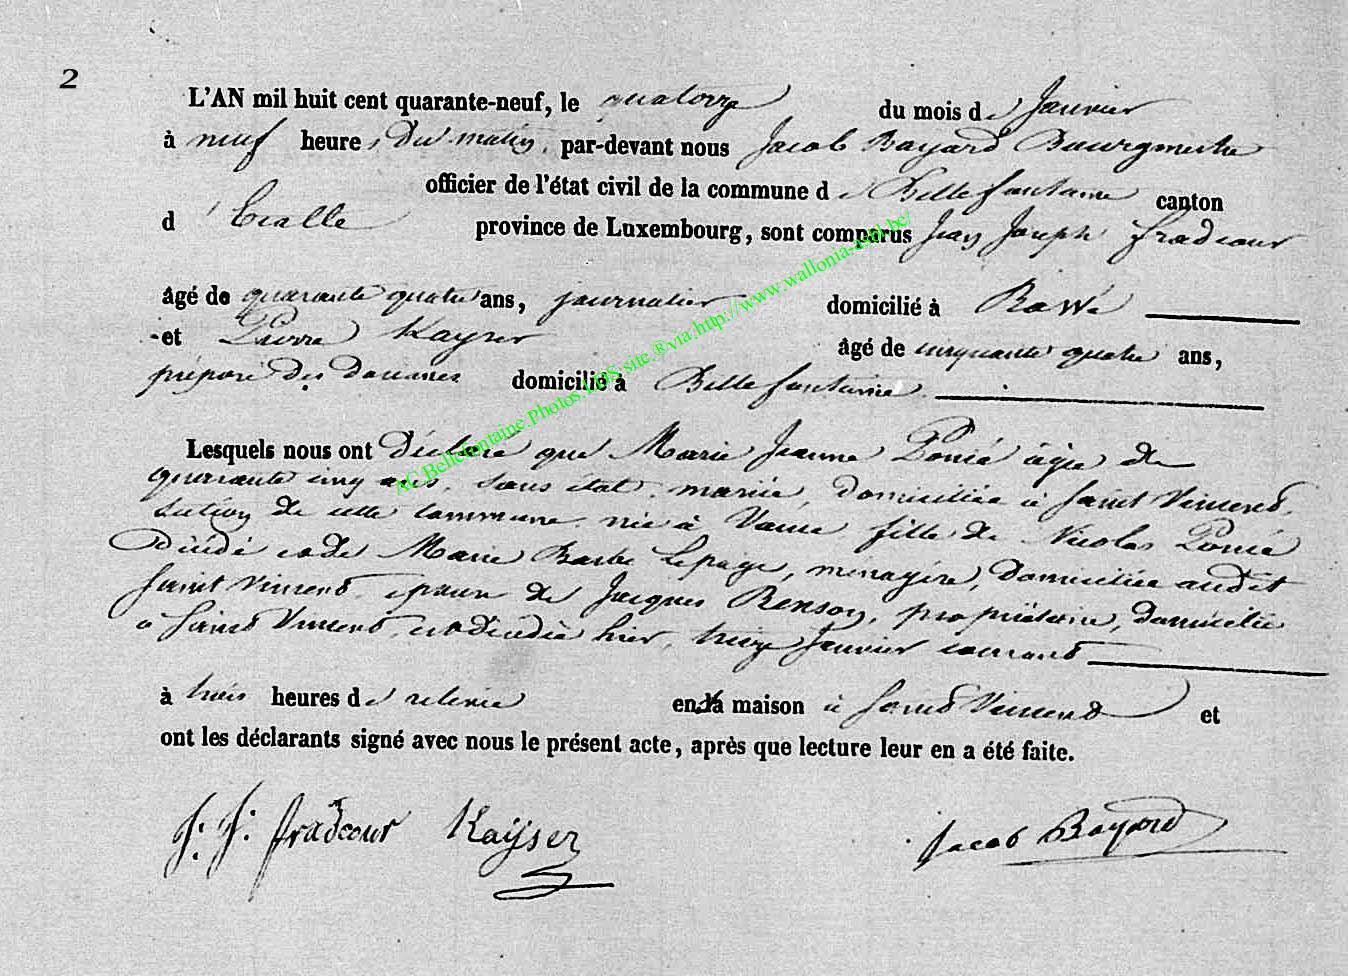 2
L'AN mil huit cent quarante-neuf, le quatorze du mois de Janvier
à neuf heures du matin, par-devant nous Jacob Bayard Bourgmestre
officier de l'état civil de la commune de Bellefontaine canton
d'Etalle province de Luxembourg, sont comparus Jean Joseph fradcour
âgé de quarante quatre ans, journalier domicilié à
et Pierre Kayser âgé de cinquante quatre ans,
préposé des douanes domicilié à Bellefontaine
Lesquels nous ont déclaré que Marie Jeanne Poncé âgée de
quarante cinq ans, sans état, mariée, domiciliée à Saint Vincent,
section de cette commune, née à fille de Nicolas Poncé
décédé et de Marie Barbe Lepage, ménagère, domiciliée audit
Saint Vincent, épouse de Jacques Renson, propriétaire, domicilié
à Saint Vincent, est décédée hier, treize Janvier courant
à trois heures de relevée en sa maison à Saint Vincent et
ont les déclarants signé avec nous le présent acte, après que lecture leur en a été faite.
J: J: fradcour Kaÿser Jacob Bayard
AC.Bellefontaine.Photos.LDS.site.®via.http://www.wallonia-asbl.be/